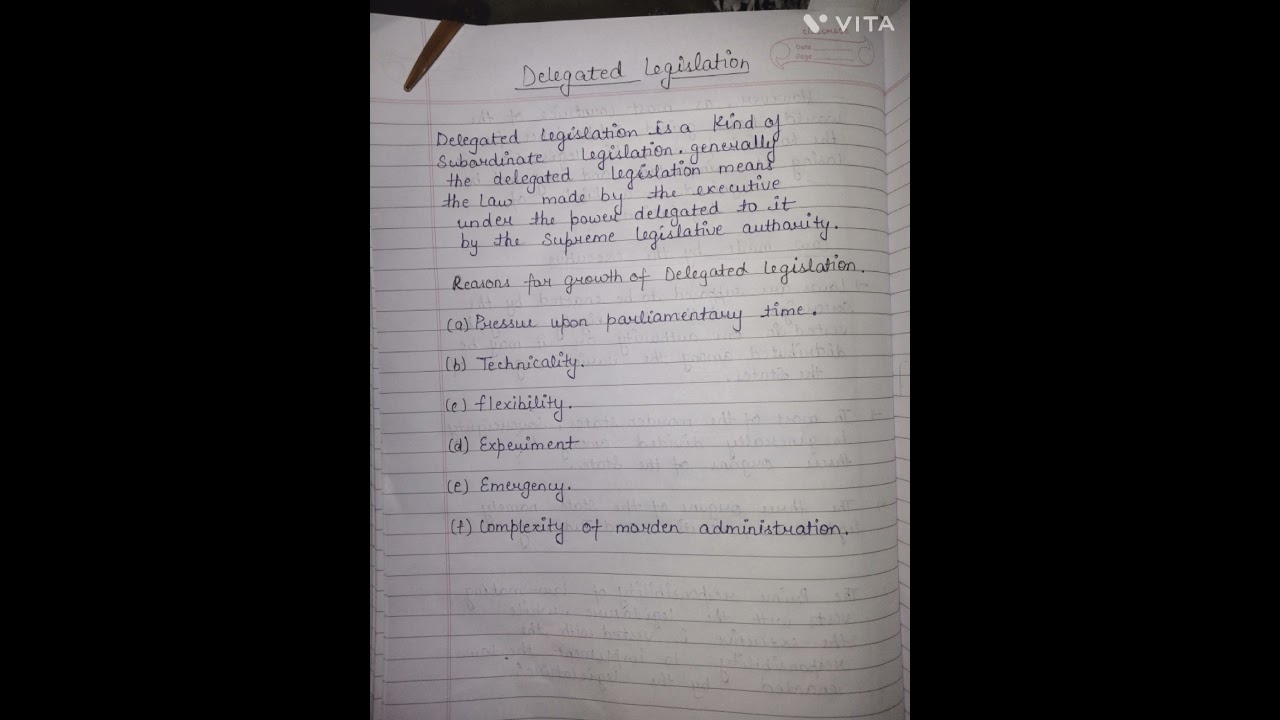 VITA
Date
Page
Delegated Legislation
Delegated Legislation is a Kind of
Subardinate Legislation. generally
the delegated Legislation means
the Law made by the executive
under the power delegated to it
by the Supreme Legislative authority.
Reasons for growth of Delegated Legislation.
(a) Pressure upon parliamentary time.
(b) Technicality.
(c) flexibility.
(d) Experiment
(e) Emergency.
(f) Complexity of marden administration.